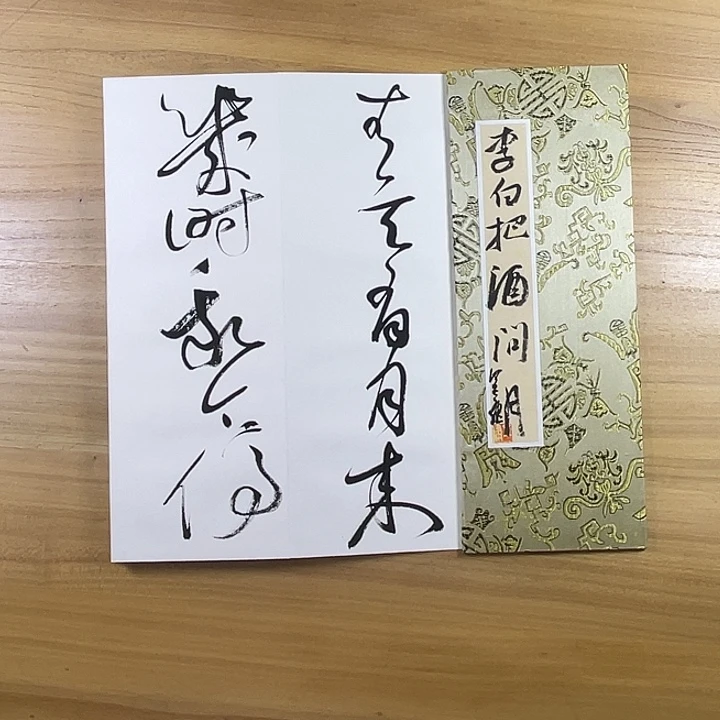 李白把酒问月
青天有月来
几时我今停